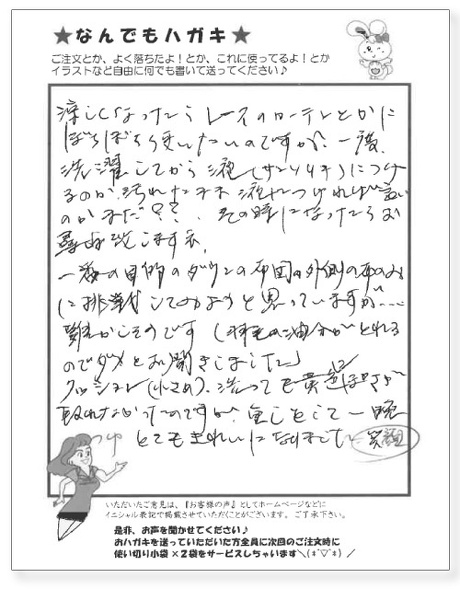 ★なんでもハガキ★
ご注文とか、よく落ちたよ！とか、これに使ってるよ！とか
イラストなど自由に何でも書いて送ってください♪
涼しくなったらレースのカーテンとかに
ぼちぼち使いたいのですが、一度
洗濯してから液(サンリキ)につけ
るのか汚れたまま液につければ良い
のかまだ??、その時になったらお
尋ね致します。
一番の目的のダウンの布団の外側の布のみ
に挑戦してみようと思っていますが…
難かしそうです(羽毛の油分がとれる
のでダメとお聞きしました)
クッション(小さめ)、洗っても黄ばみが
取れなかったのですが、
とてもきれいになりました 笑顔
いただいたご意見は、『お客様の声』としてホームページなどに
イニシャル表記で掲載させていただくことがございます。ご了承下さい。
是非、お声を聞かせてください♪
おハガキを送っていただいた方全員に次回のご注文時に
使い切り小袋×2袋をサービスしちゃいます＼(*´▽`*)／